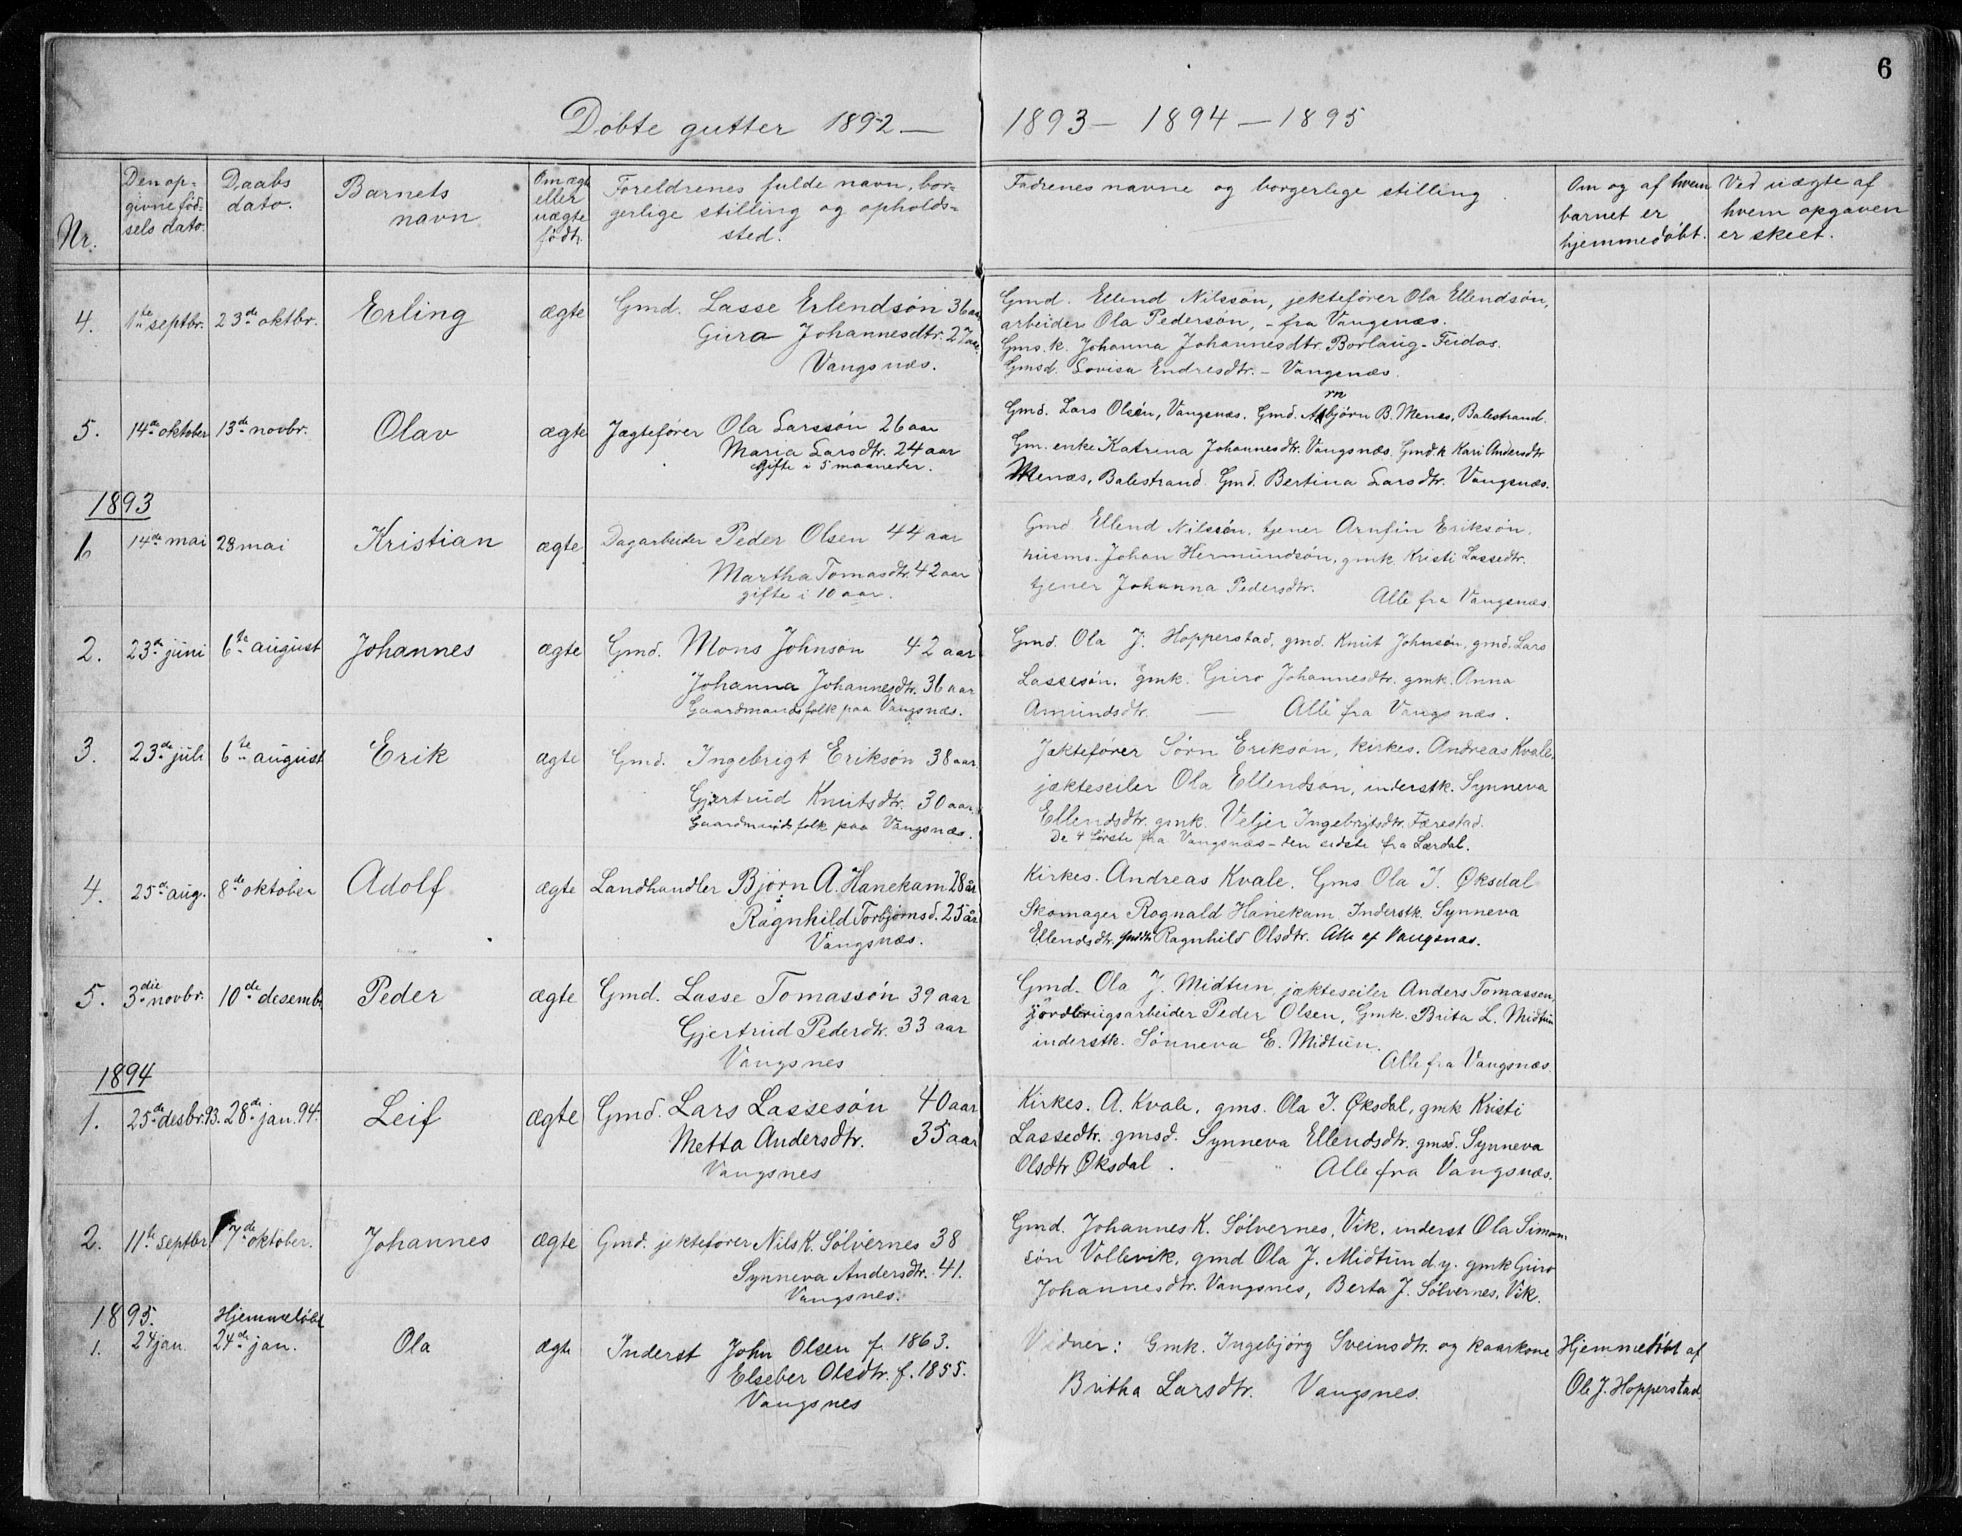 6
Døbte gutter 1892 — 1893 — 1894 — 1895
Nr.
Den op-
givne fød-
sels dato.
Daabs
dato.
Barnets
navn
Om ægte
eller
uægte
født.
Foreldrenes fulde navn, bor-
gerlige stilling og opholds-
sted.
Fadrenes navne og borgerlige stilling.
Om og af hvem
barnet er
hjemmedøbt.
Ved uægte af
hvem opgaven
er skeet.
4. 1ste septbr. 23de oktbr. Erling ægte Gmd. Lasse Erlendsøn 36 aar
Gura Johannesdtr. 27 aar.
Vangsnæs.
Gmd. Ellend Nilssøn, jektefører Ola Ellendsøn,
arbeider Ola Pedersøn, - fra Vangsnæs.
Gms. k. Johanna Johannesdtr. Borlaug - Feidas.
Gmsd. Lovisa Endresdtr. - Vangsnæs.
5. 14de oktober 13de novbr. Olav ægte Jægtefører Ola Larssøn 26 aar
Maria Larsdtr. 24 aar
Gifte i 5 maaneder.
Gmd. Lars Olsén, Vangsnæs. Gmd. Arnbjørn B. Menes, Balestrand.
Gm. enke Katrina Johannesdtr. Vangsnæs. Gmd. k Kari Andersdtr
Menæs, Balestrand. Gmd. Bertina Larsdtr. Vangsnæs.
1893
1. 14de mai 28 mai Kristian ægte Dagarbeider Peder Olsen 44 aar
Martha Tomasdtr. 42 aar
gifte i 10 aar.
Gmd. Ellend Nilssøn, tjener Arnfin Eriksøn,
husms. Johan Hermundsøn, gmk. Kristi Lassedtr.
tjener Johanna Pedersdtr.
Alle fra Vangsnæs.
2. 23de juni 6te august Johannes ægte Gmd. Mons Johnsøn 42 aar
Johanna Johannesdtr. 36 aar
Gaardmandsfolk paa Vangsnæs.
Gmd. Ola J. Hopperstad, gmd. Knut Johnsøn, gmd. Lars
Lassesøn, gmk. Guro Johannesdtr. gmk. Anna
Amundsdtr. — Alle fra Vangsnæs.
3. 23de juli 6te august Erik ægte Gmd. Ingebrigt Eriksøn 38 aar.
Gjertrud Knutsdtr. 30 aar.
Gaardmandsfolk paa Vangsnæs.
Jektefører Sørn Eriksøn, kirkes. Andreas Kvale,
jækteseiler Ola Ellendsøn, inderstk. Synneva
Ellendsdtr. gmk. Veljer Ingebrigtsdtr. Færestad.
De 4 første fra Vangsnæs - den sidste fra Lærdal.
4. 25de aug. 8de oktober Adolf ægte Landhandler Bjørn A. Hanekam 28 år
Ragnhild Torbjørnsd. 25 år
Vangsnæs.
Kirkes. Andreas Kvale, Gms Ola I. Øksdal
Skomager Rognald Hanekam, Inderstk. Synneva
Ellendsdtr. Ragnhild Olsdtr. Alle af Vangsnæs.
5. 3die novbr. 10de desemb. Peder ægte Gmd. Lasse Tomassøn 39 aar
Gjertrud Pedersdtr. 33 aar
Vangsnes
Gmd. Ola J. Midtun, jækteseiler Anders Tomassen,
jordbrugsarbeider Peder Olsen, Gmk. Brita L. Midtun
inderstk. Sønneva E. Midtun.
Alle fra Vangsnæs.
1894
1. 25de desbr. 93. 28de jan. 94. Leif ægte Gmd. Lars Lassesøn 40 aar
Metta Andersdtr. 35 aar
Vangsnes
Kirkes. A. Kvale, gms. Ola I. Øksdal, gmk Kristi
Lassedtr. gmsd. Synneva Ellendsdtr. gmsd. Synneva
Olsdtr Øksdal. Alle fra Vangsnæs.
2. 11te septbr. 7de oktober. Johannes ægte Gmd. jektefører Nils K. Sølvernes 38
Synneva Andersdtr. 41.
Vangsnes.
Gmd. Johannes K. Sølvernes, Vik. inderst Ola Simon-
søn Vollevik, gmd Ola J. Midtun d.y. gmk Guro
Johannesdtr. Vangsnes, Berta J. Sølvernes, Vik.
1895.
Hjemmedøbt
1. 24 jan. 24de jan. Ola ægte Inderst John Olsen f. 1863.
Elseber Olsdtr. f. 1855.
Vangsnes
Vidner: Gmk. Ingebjørg Sveinsdtr. og kaarkone
Britha Larsdtr. Vangsnes.
Hjemmedøbt af
Ole J. Hopperstad.